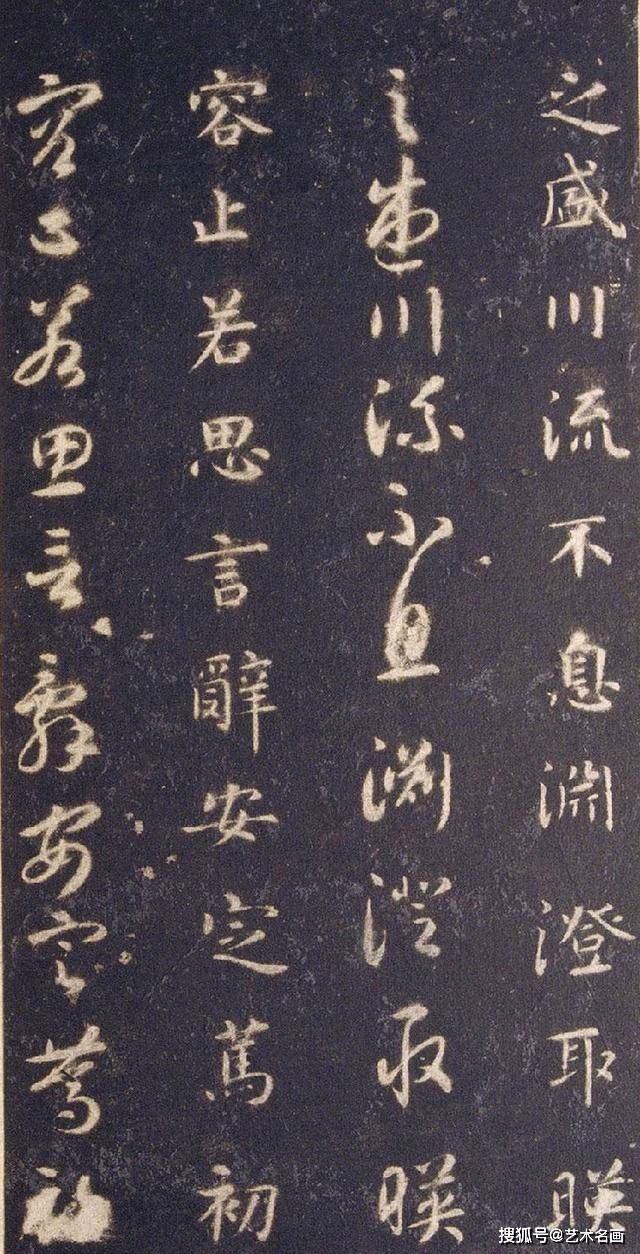 之盛川流不息淵澄取暎
之盛川流不息淵澄取暎
容止若思言辭安定篤初
容止若思言辭安定篤初
搜狐号@艺术名画